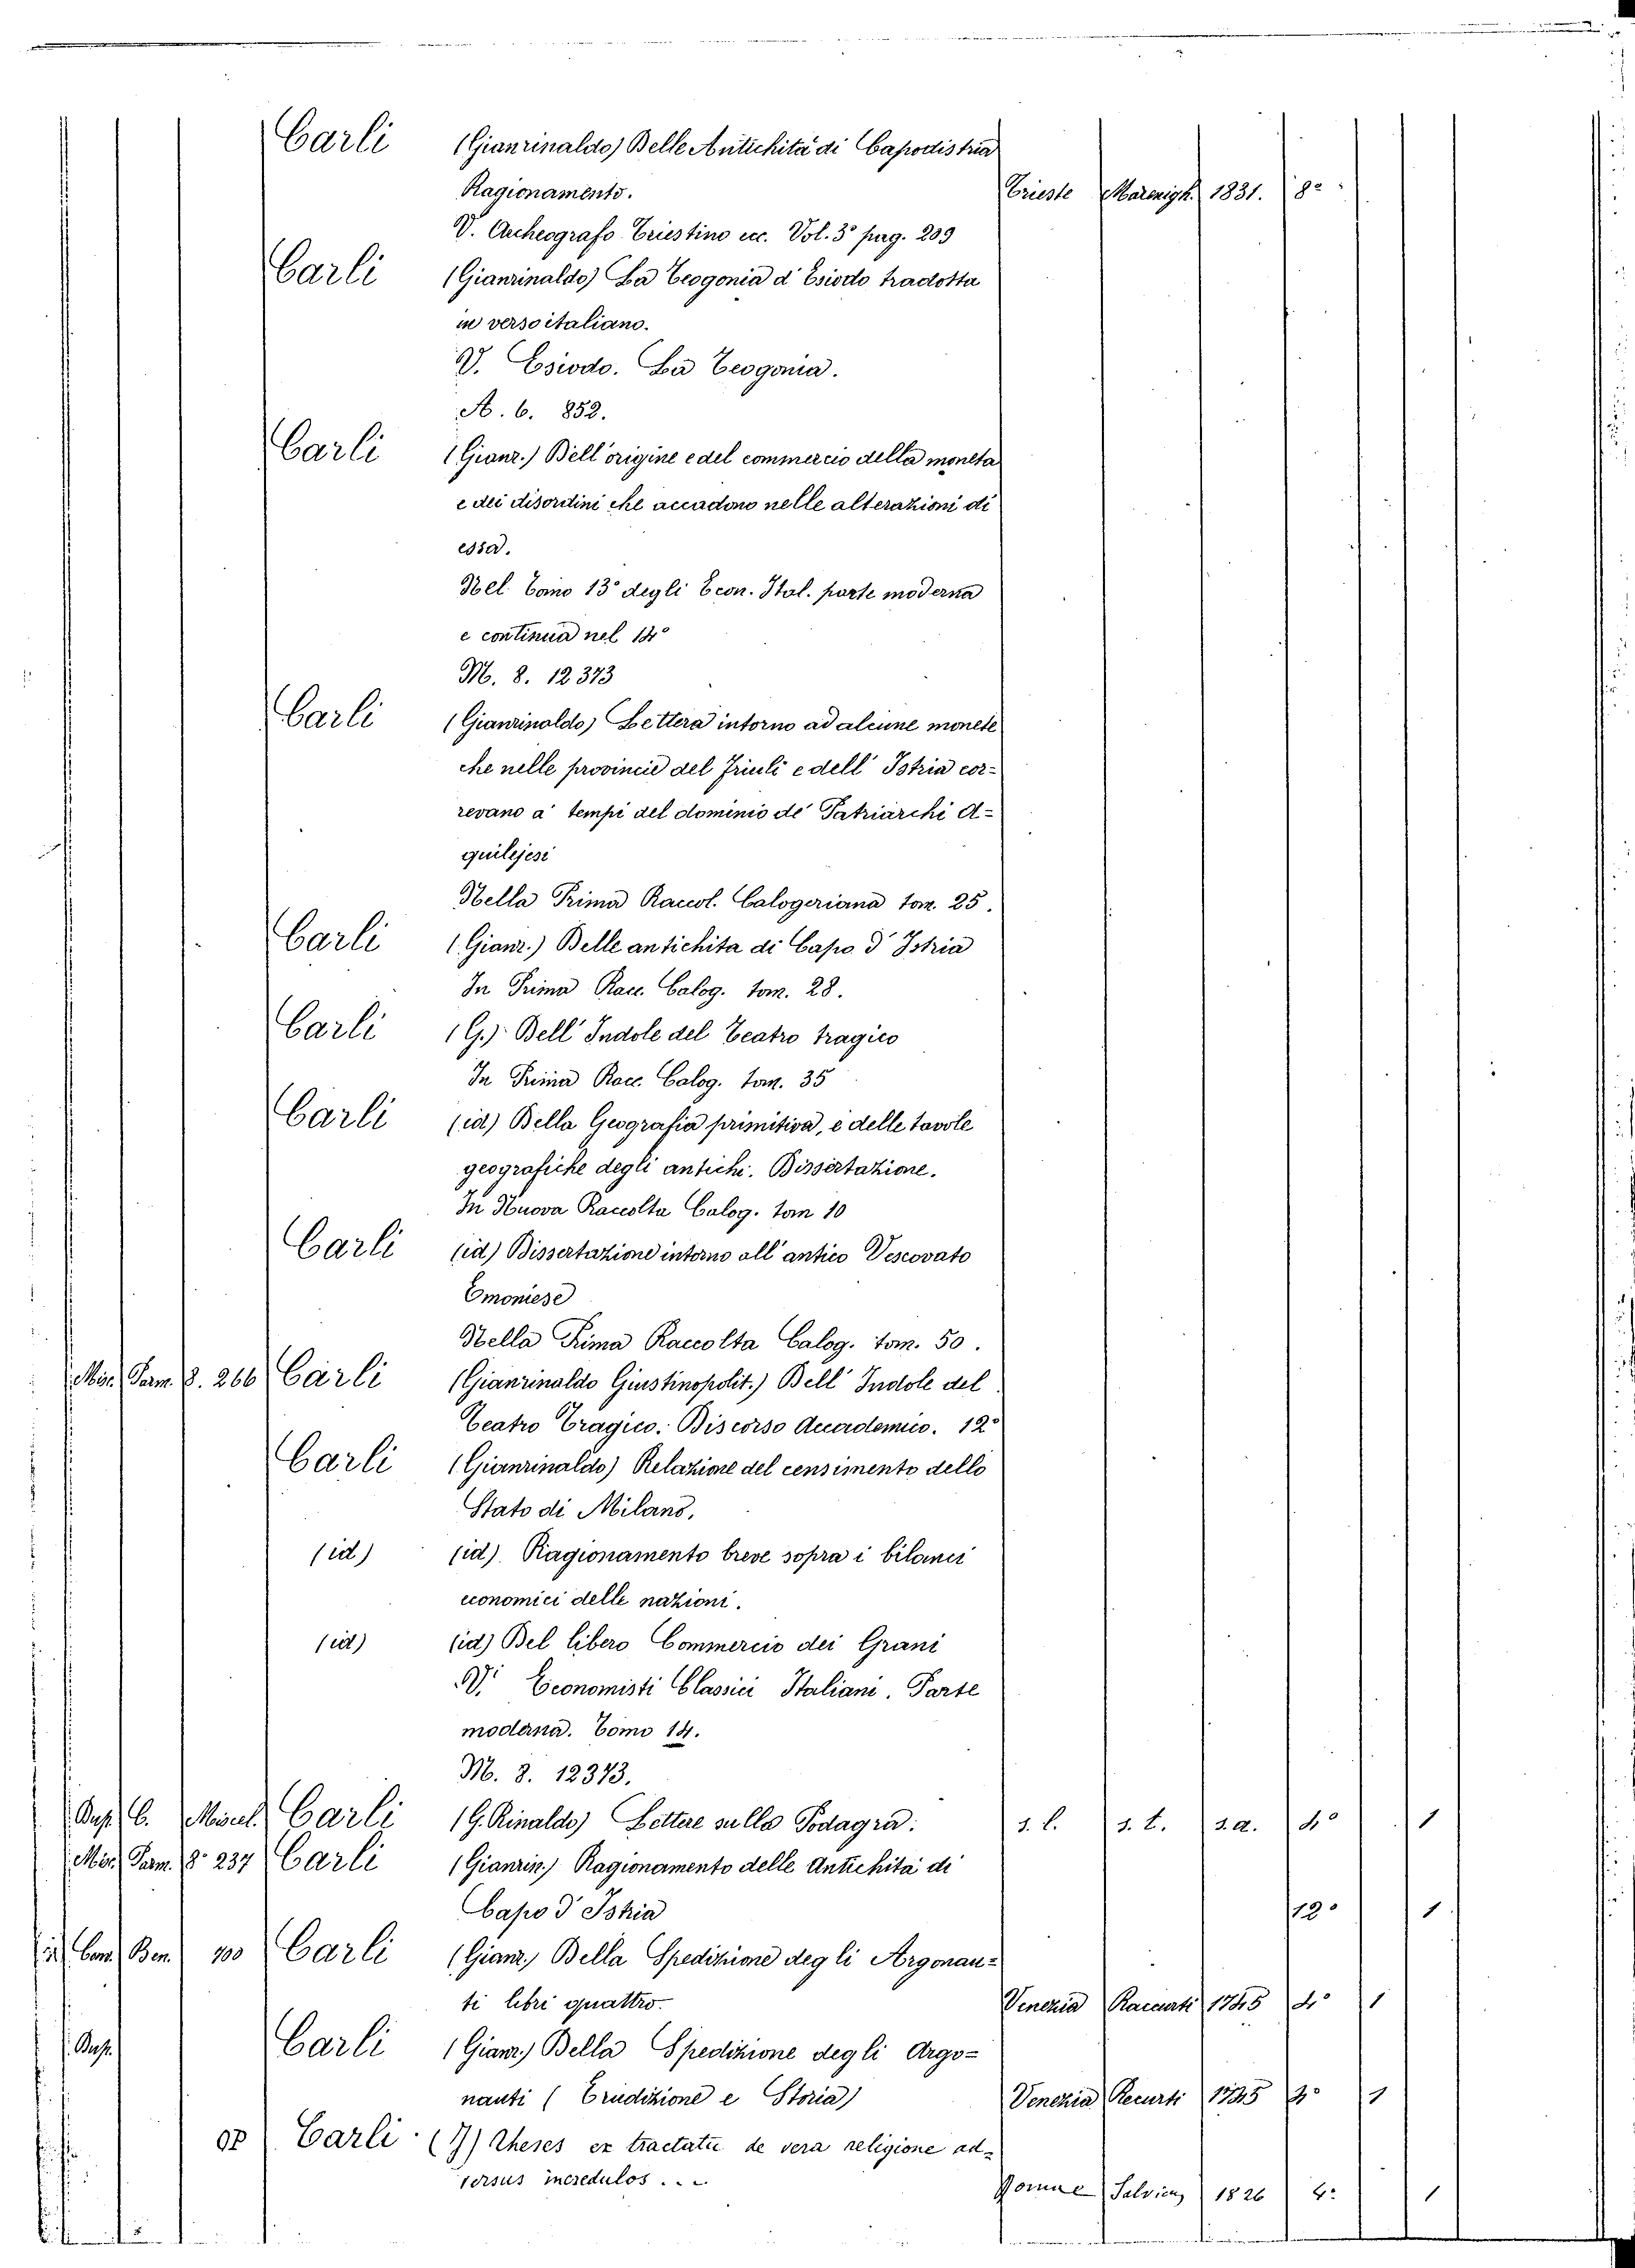 Carli (Gianrinaldo) Delle Antichità di Capodistria
Ragionamento. Trieste Marenigh. 1831. 8°
V. Archeografo Triestino ecc. Vol. 3° pag. 209
Carli (Gianrinaldo) La Teogonia d' Esiodo tradotta
in verso italiano.
V. Esiodo. La Teogonia.
A. 6. 852.
Carli (Gianr.) Dell' origine e del commercio della moneta
e dei disordini che accadono nelle alterazioni di
essa.
Nel Tomo 13° degli Econ. Ital. parte moderna
e continua nel 14°
M. 8. 12373
Carli (Gianrinaldo) Lettera intorno ad alcune monete
che nelle provincie del Friuli e dell' Istria cor-
revano a' tempi del dominio de' Patriarchi A-
quilejesi
Nella Prima Raccol. Calogeriana tom. 25.
Carli (Gianr.) Delle antichita di Capo d' Istria
In Prima Racc. Calog. tom. 28.
Carli (G.) Dell' Indole del Teatro tragico
In Prima Racc. Calog. tom. 35
Carli (id) Della Geografia primitiva, e delle tavole
geografiche degli antichi. Dissertazione.
In Nuova Raccolta Calog. tom 10
Carli (id) Dissertazione intorno all' antico Vescovato
Emoniese
Nella Prima Raccolta Calog. tom. 50.
Mis. Parm. 8. 266 Carli (Gianrinaldo Giustinopolit.) Dell' Indole del
Teatro Tragico. Discorso Accademico. 12°
Carli (Gianrinaldo) Relazione del censimento dello
Stato di Milano.
(id) (id) Ragionamento breve sopra i bilanci
economici delle nazioni.
(id) (id) Del libero Commercio dei Grani
V. Economisti Classici Italiani. Parte
moderna. Tomo 14.
M. 8. 12373.
Dup. C. Miscel. Carli (G. Rinaldo) Lettere sulla Podagra. s. l. s. t. s. a. 4° 1
Mis. Parm. 8° 237 Carli (Gianrin.) Ragionamento delle Antichità di
Capo d' Istria 12° 1
Ben. 100 Carli (Gianr.) Della Spedizione degli Argonau-
ti libri quattro. Venezia Raccurti 1745 4° 1
Dup. Carli (Gianr.) Della Spedizione degli Argo-
nauti (Erudizione e Storia) Venezia Recurti 1745 4° 1
OP Carli (J) Theses ex tractatu de vera religione ad-
versus incredulos... Romae Salviucci 1826 4° 1